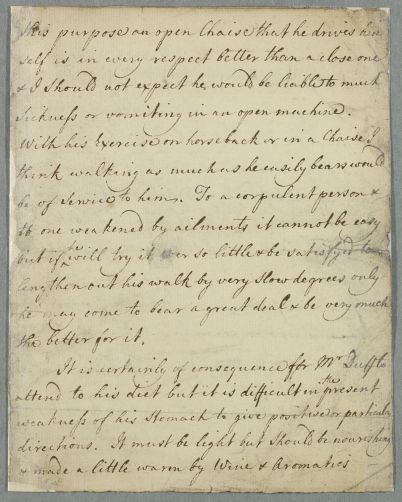 this purpose an open Chaise that he drives him
self is in every respect better than a close one
& I should not expect he would be liable to much
Sickness or vomiting in an open machine.
With his Exercise on horseback or in a Chaise I
think walking as much as he easily bears would
be of Service to him. To a corpulent person &
to one weakened by ailments it cannot be easy
but if he will try it ever so little & be satisfyed to
lengthen out his walk by very slow degrees only
he may come to bear a great deal & be very much
the better for it.
It is certainly of consequence for Mr Duff to
attend to his diet but it is difficult in the present
weakness of his Stomach to give positive or particular
directions. It must be light but should be nourishing
& made a little warm by Wine & Aromatics